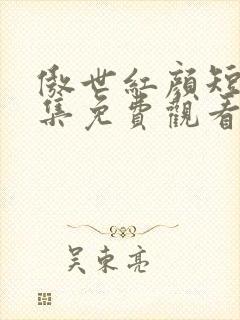 傲世紅顏短
集免費觀看
吳東亮